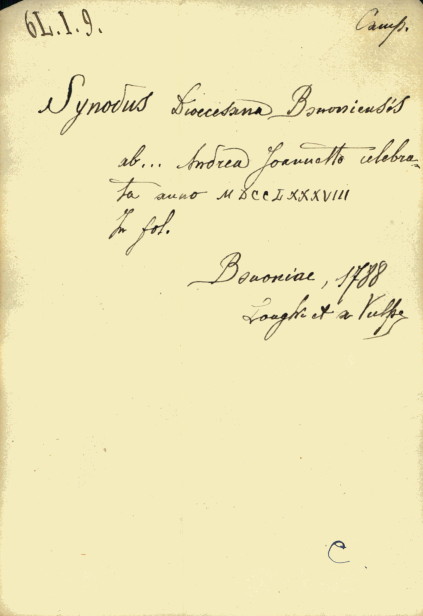 6L.I.9.
Camp.
Synodus Dioecesana Bononiensis
ab... Andrea Joannetto celebra-
ta anno MDCCLXXXVIII
In fol.
Bononiae, 1788
Longhi et a Vulpe
C